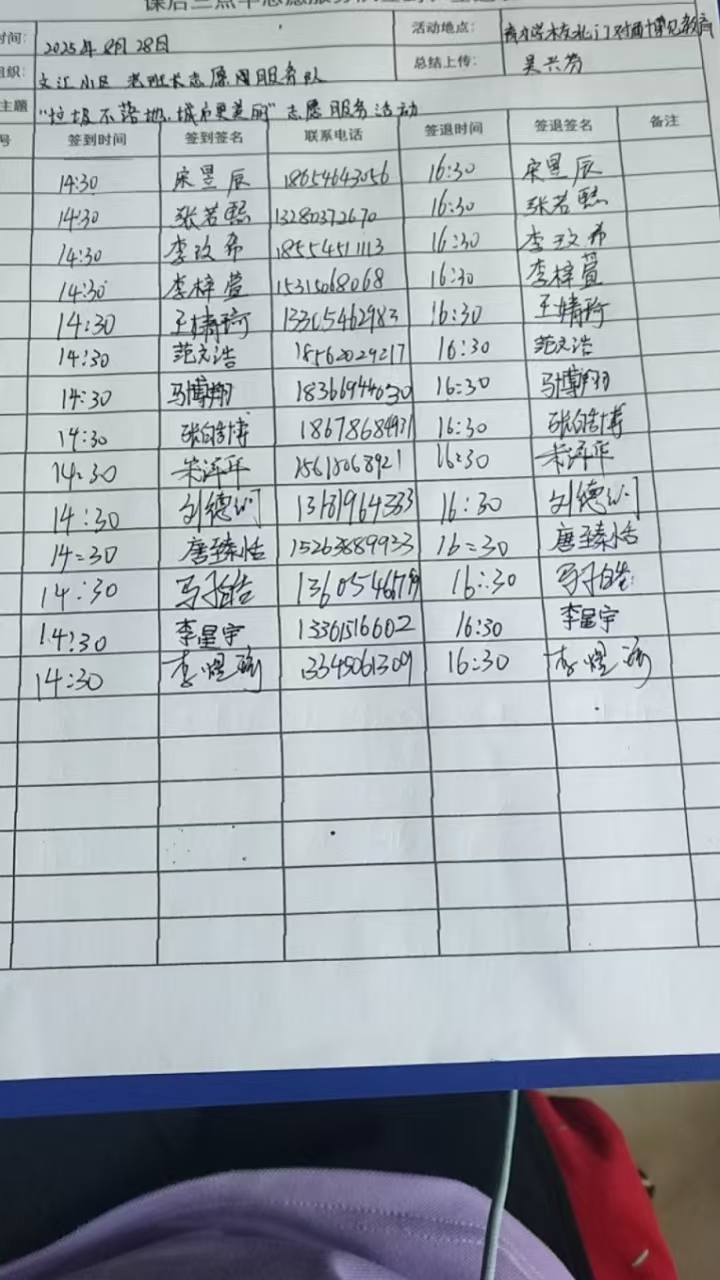 课后三点半志愿服务
时间: 2025年8月28日 活动地点: 对面博见教育
组织: 文汇小区 老班长志愿团服务队 总结上传: 吴兴芳
主题 "垃圾不落地,城市更美丽"志愿服务活动
号 签到时间 签到签名 联系电话 签退时间 签退签名 备注
14:30 宋昱辰 18654643056 16:30 宋昱辰
14:30 张若熙 13280372670 16:30 张若熙
14:30 李玟希 18554511113 16:30 李玟希
14:30 李梓萱 15315068068 16:30 李梓萱
14:30 王婧琦 13305462983 16:30 王婧琦
14:30 范文浩 18562029217 16:30 范文浩
14:30 马博翔 16:30 马博翔
14:30 张皓博 18678684931 16:30 张皓博
14:30 朱泽年 16:30 朱泽年
14:30 刘德 16:30 刘德
14=30 唐臻恬 15263889933 16=30 唐臻恬
14:30 马子皓 16:30 马子皓
14:30 李星宇 13361516602 16:30 李星宇
14:30 李煜 13345061309 16:30 李煜